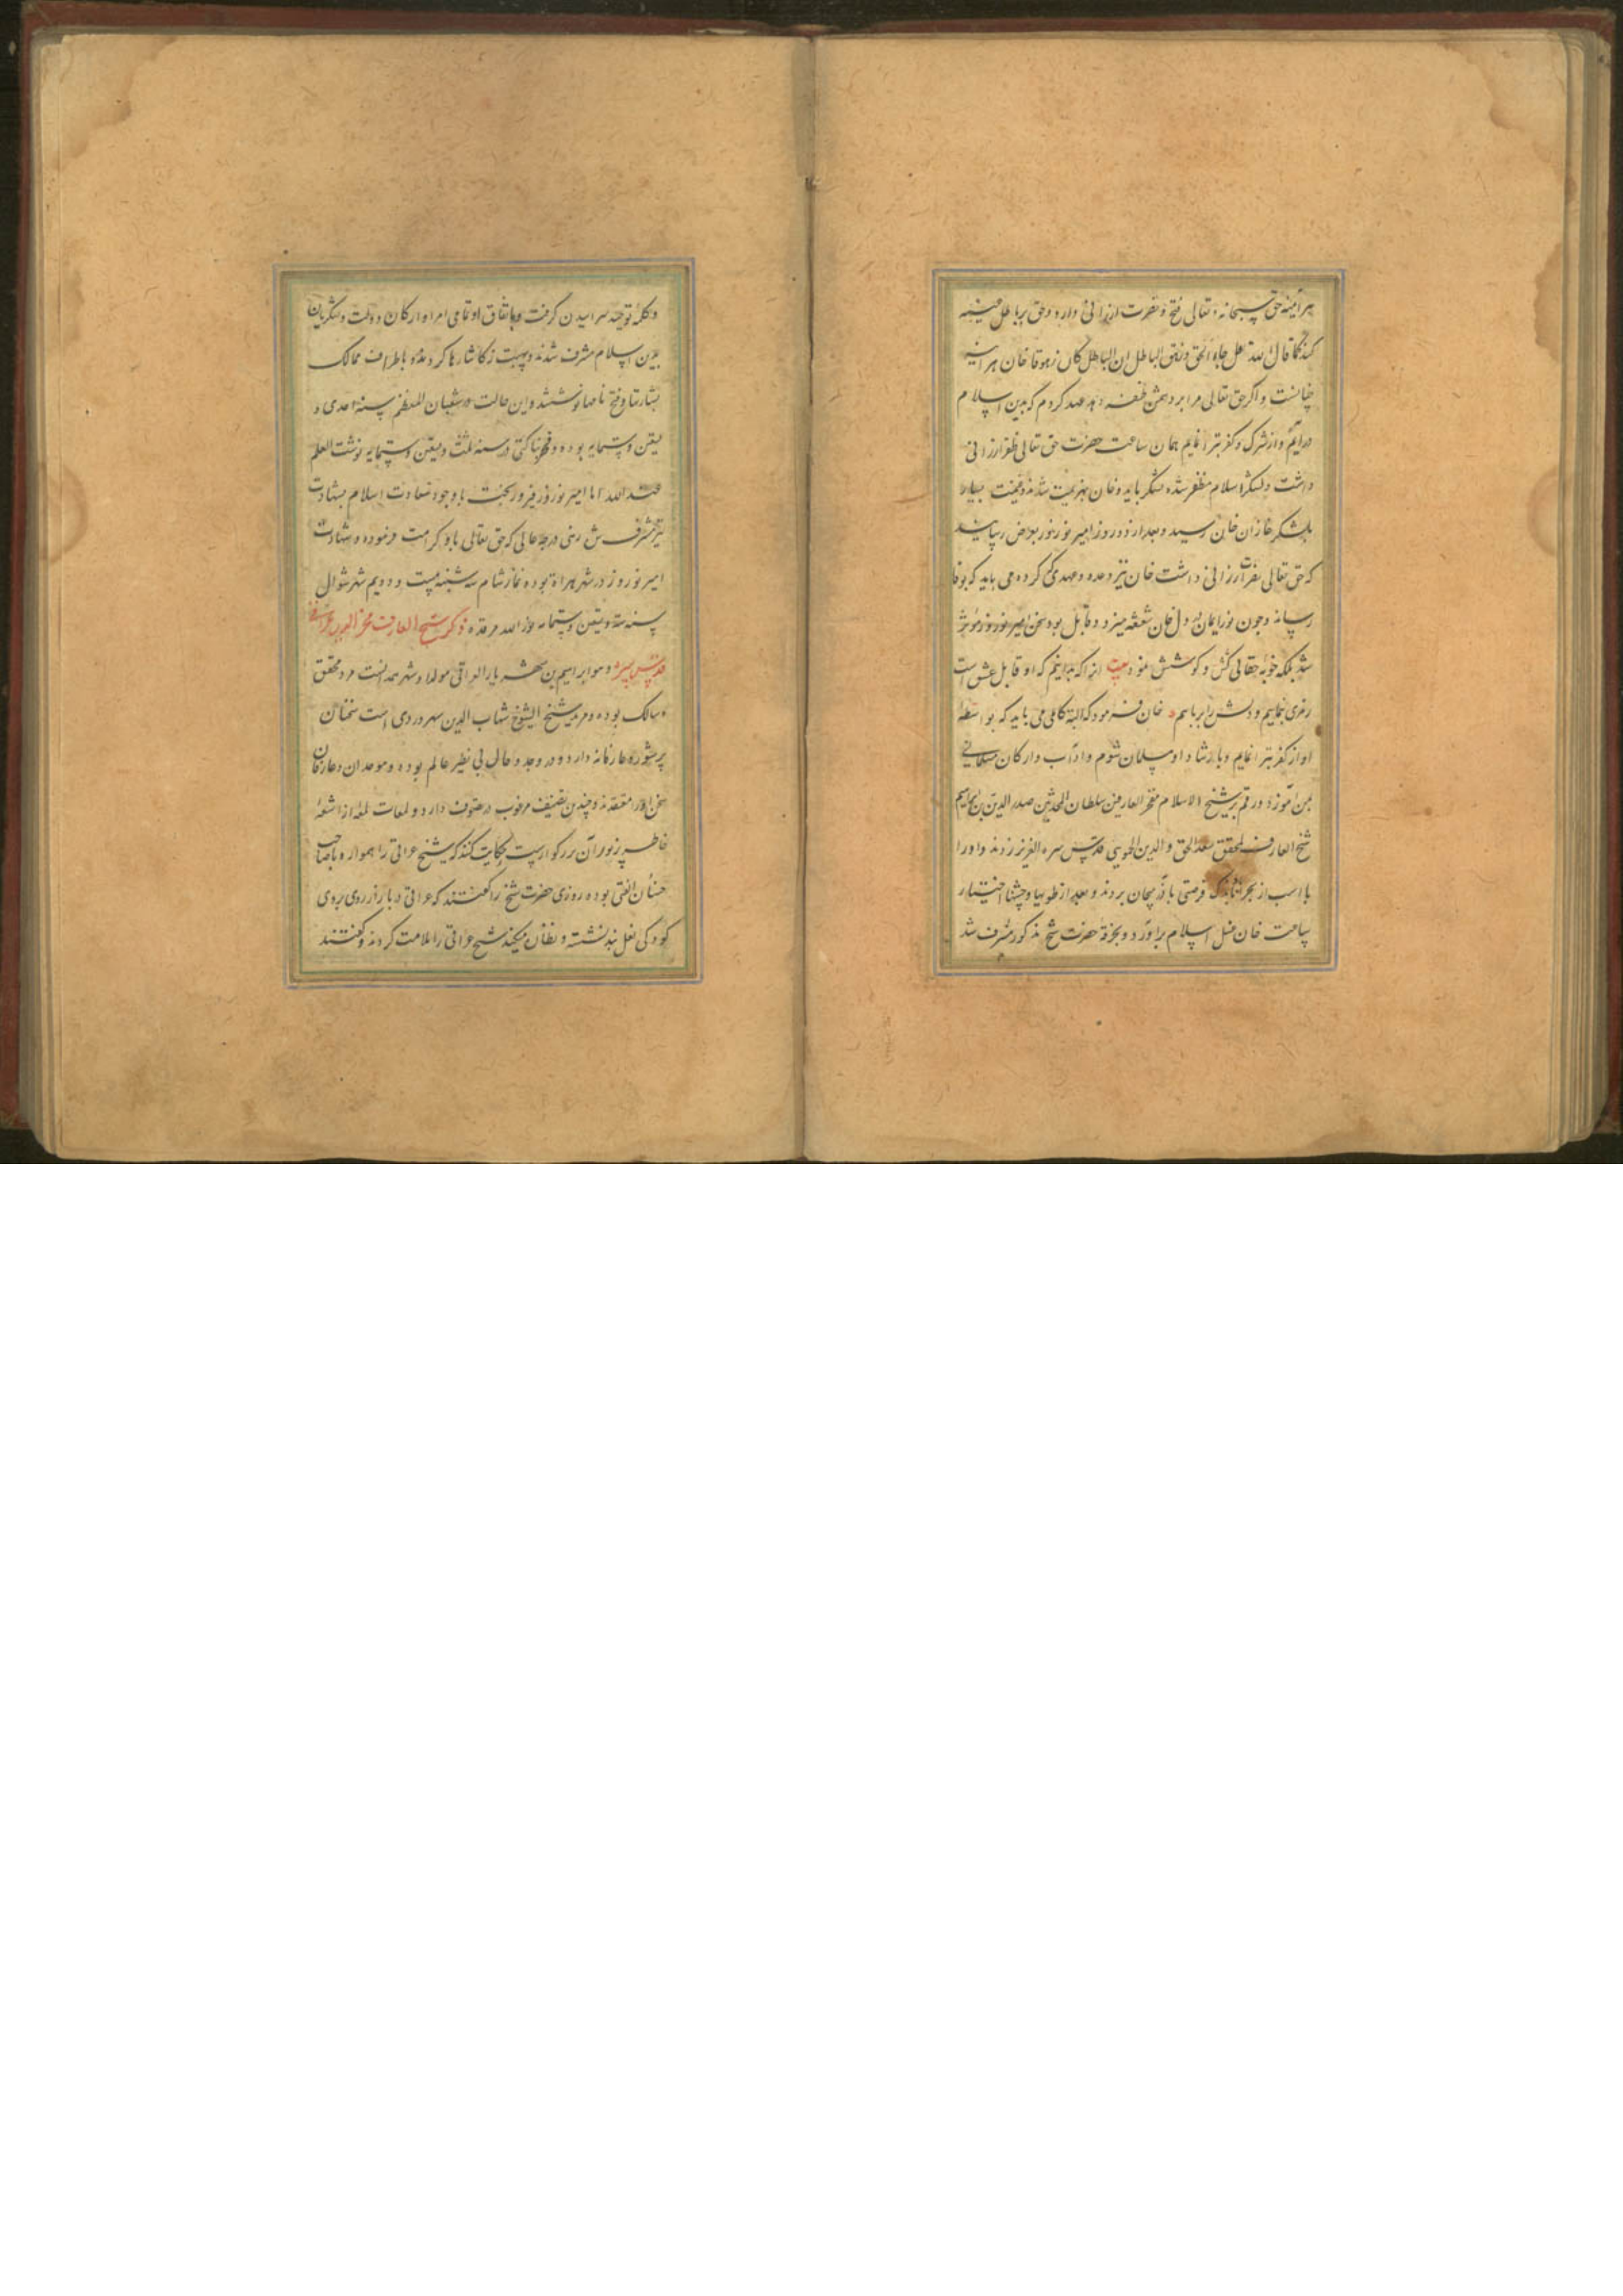 هرآینه حق سبحانه و تعالی فتح و نصرت ارزانی دارد و حق بر باطل همیشه
کند کما قال الله تعالی جاء الحق و زهق الباطل ان الباطل کان زهوقا خان هرآینه
خیانت و اکر حق تعالی مرا بر دشمن ظفر دهد عهد کردم که بدین اسلام
درآیم و از شرک و کفر تبرا نمایم همان ساعت حضرت حق تعالی ظفر ارزانی
داشت و لشکر اسلام مظفر شده لشکر بایدوخان بهزیمت شدند و غنیمت بسیار
بلشکر غازان خان رسید و بعد از دو روز امیر نوروز بعرض رسانید
که حق تعالی نصرت ارزانی داشت خان نیز وعده و عهدی که کرده می باید که بوفا
رساند و چون نور ایمان در دل خان شعشه میزد و قابل بود سخن امیر نوروز مؤثر
شد بلکه خود حقانی کش و کوشش نمود بیت انرا که بدانیم که او قابل عشق است
رمزی بنماییم و دلش را برباییم خان فرمود که البته کاملی می باید که بواسطه
او از کفر تبرا نمایم و بارشاد او مسلمان شوم و آداب و ارکان مسلمانی
بمن آموزد و رقم بر شیخ الاسلام مفخر العارفین سلطان المحدثین صدر الدین ابراهیم
شیخ العارف المحقق سعد الحق و الدین الحمویی قدس سره العزیز زدند و او را
با اسب از بحراباد باندک فرصتی باذربیجان بردند و بعد از طوییها و جشنها اختیار
ساعت خان غسل اسلام برآورد و بخرقه حضرت شیخ مذکور مشرف شد
و کلمه توحید سراییدن کرفت و باتفاق او تمامی امرا و ارکان دولت و لشکریان
بدین اسلام مشرف شدند و بهیبت زکا نثارها کردند و باطراف ممالک
بشارتها و فتح نامها نوشتند و این حالت در شعبان المعظم سنه احدی و
تسعین و ستمایه بوده و فخر بناکتی در سنه ثلث و تسعین و ستمایه نوشت العلم
عند الله اما امیر نوروز فیروز بخت با وجود سعادت اسلام بشهادت
نیز مشرف شد زهی درجه عالی که حق تعالی باو کرامت فرموده و شهادت
امیر نوروز در شهر هراة بوده نماز شام سه شنبه بیست و دویم شهر شوال
سنه ستة و تسعین و ستمایه نور الله مرقده ذکر شیخ العارف فخر الدین عراقی
قدس سره و هو ابراهیم بن شهریار العراقی مولد او شهر همدانست مرد محقق
و سالک بوده و مرید شیخ الشیوخ شهاب الدین سهروردی است سخنان
پرشور عارفانه دارد و در وجد و حال بی نظیر عالم بوده و موحدان و عارفان
سخن او را معتقدند و چندین تصنیف مرغوب در تصوف دارد و لمعات لمعه از اشعه
خاطر پرنور آن بزرکوارست حکایت کنند که شیخ عراقی را همواره با صاحب
حسنان الفتی بوده روزی حضرت شیخ را کفتند که عراقی در بازار روی بروی
کودکی نعل بند نشسته و نظاره میکند شیخ عراقی را ملامت کردند و کفتند